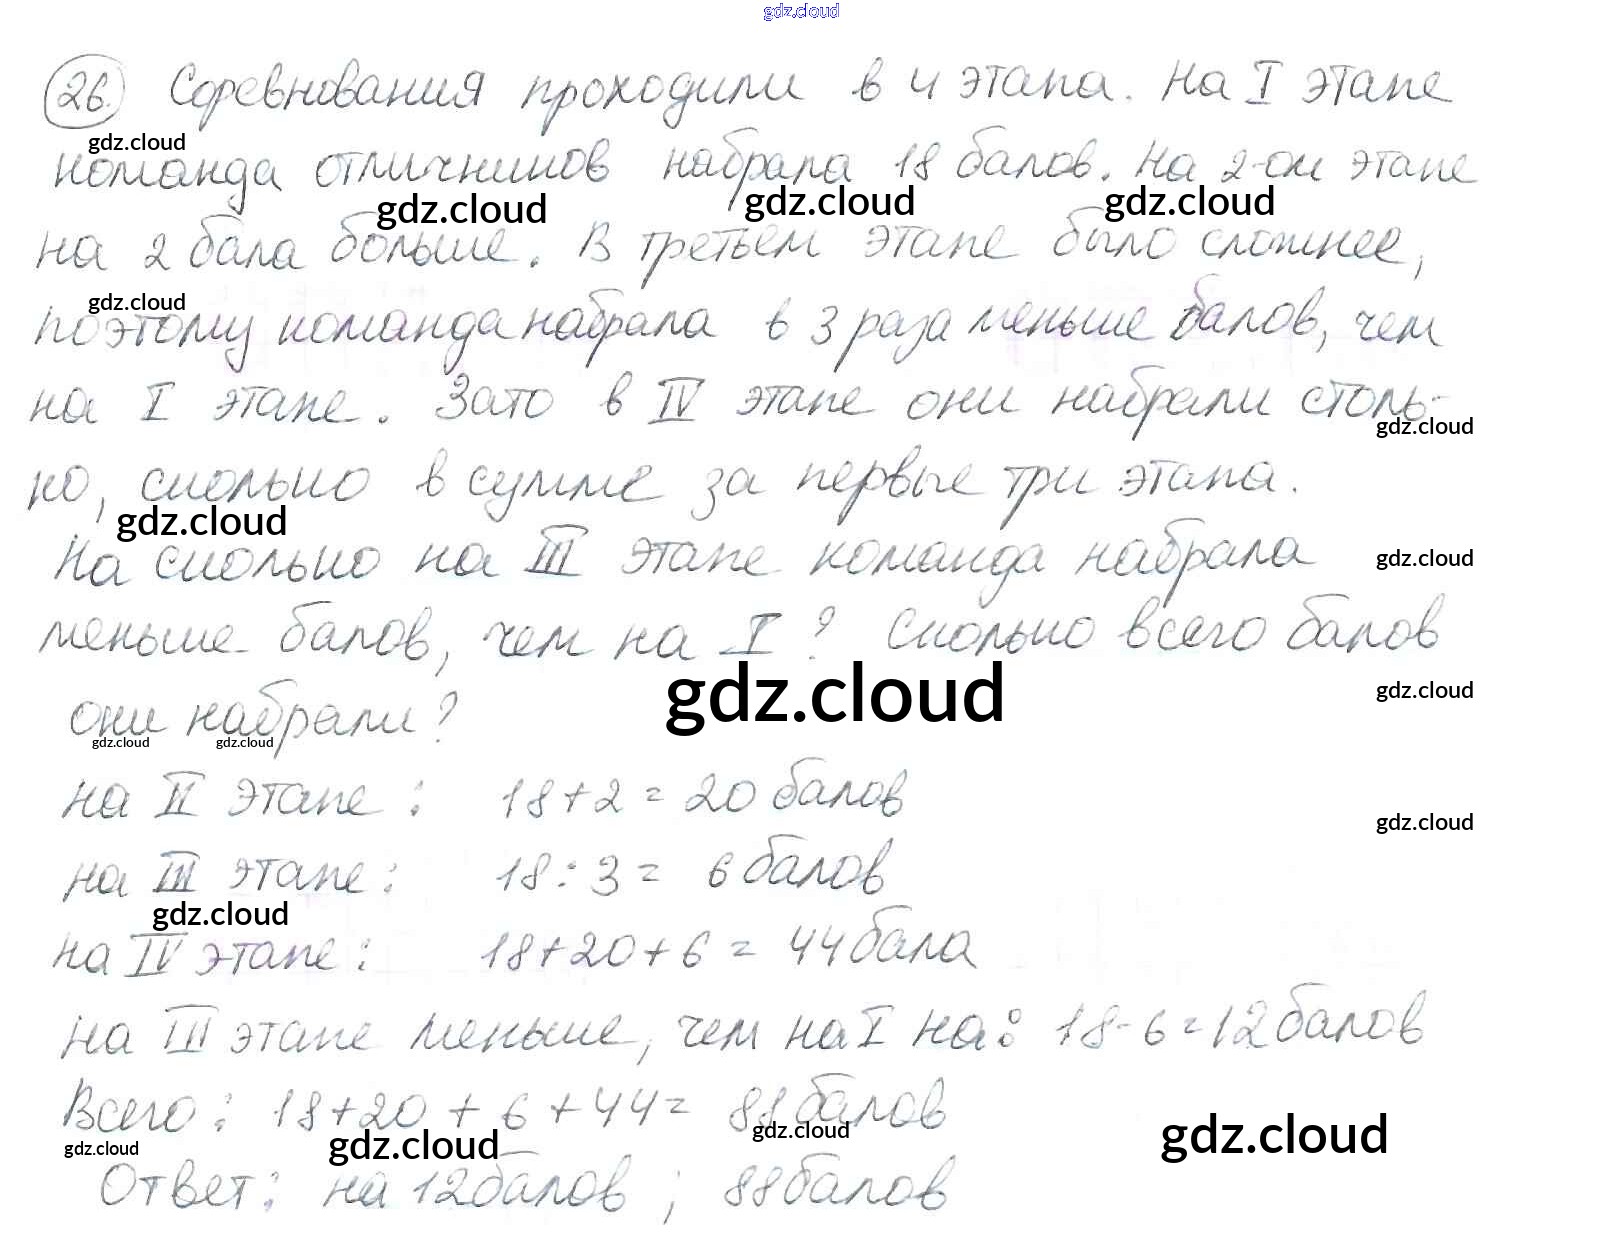 gdz.cloud
26. Соревнования проходили в 4 этапа. На I этапе
gdz.cloud
команда отличников набрала 18 балов. На 2-ом этапе
gdz.cloud gdz.cloud gdz.cloud
на 2 бала больше. В третьем этапе было сложнее,
gdz.cloud
поэтому команда набрала в 3 раза меньше балов, чем
на I этапе. Зато в IV этапе они набрали столь-
gdz.cloud
ко, сколько в сумме за первые три этапа.
gdz.cloud
На сколько на III этапе команда набрала
gdz.cloud
меньше балов, чем на I? Сколько всего балов
gdz.cloud gdz.cloud
они набрали?
gdz.cloud gdz.cloud
на II этапе: 18+2=20 балов
gdz.cloud
на III этапе: 18:3= 6 балов
gdz.cloud
на IV этапе: 18+20+6=44 бала
на III этапе меньше, чем на I на: 18-6=12 балов
Всего: 18+20+6+44= 88 балов
gdz.cloud gdz.cloud gdz.cloud gdz.cloud
Ответ: на 12 балов; 88 балов